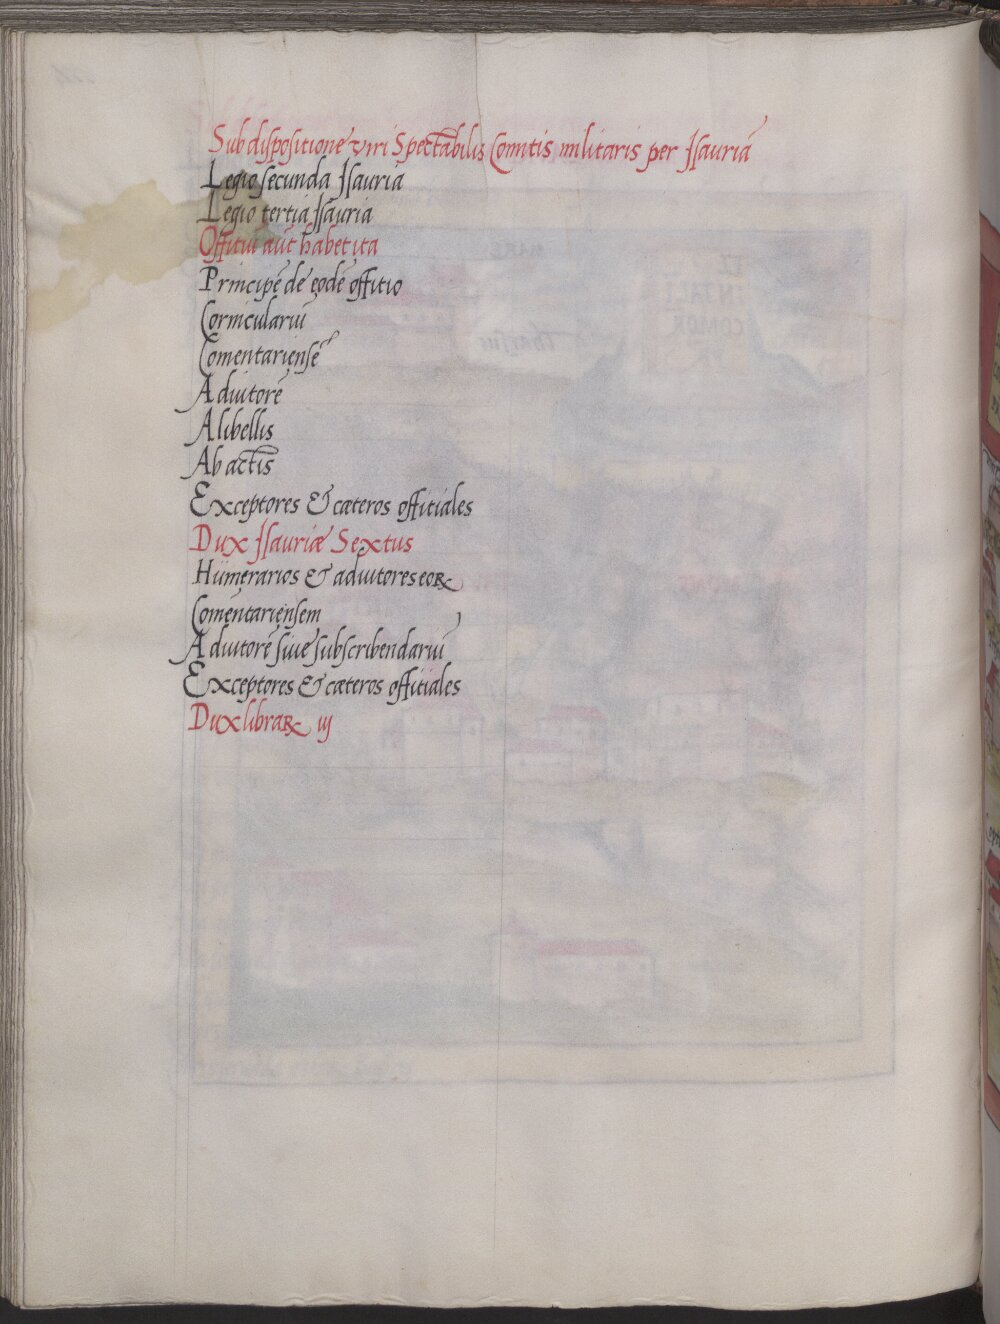 Sub dispositione viri Spectabilis Comitis militaris per Isauriā
Legio secunda Isauria
Legio tertia Isauria
Offitiū aūt habet ita
Principē de eodē offitio
Corniculariū
Comentariensē
Adiutorē
A libellis
Ab actis
Exceptores & cæteros offitiales
Dux Isauriæ Sextus
Numerarios & adiutores eoꝝ
Comentariensem
Adiutorē siue subscribendariū
Exceptores & cæteros offitiales
Dux libraꝝ iij